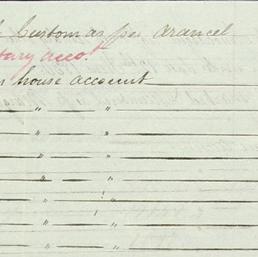 Custom as per Arancel
tary acco.t
house account
" "
" "
" "
" "
" "
" "
" "